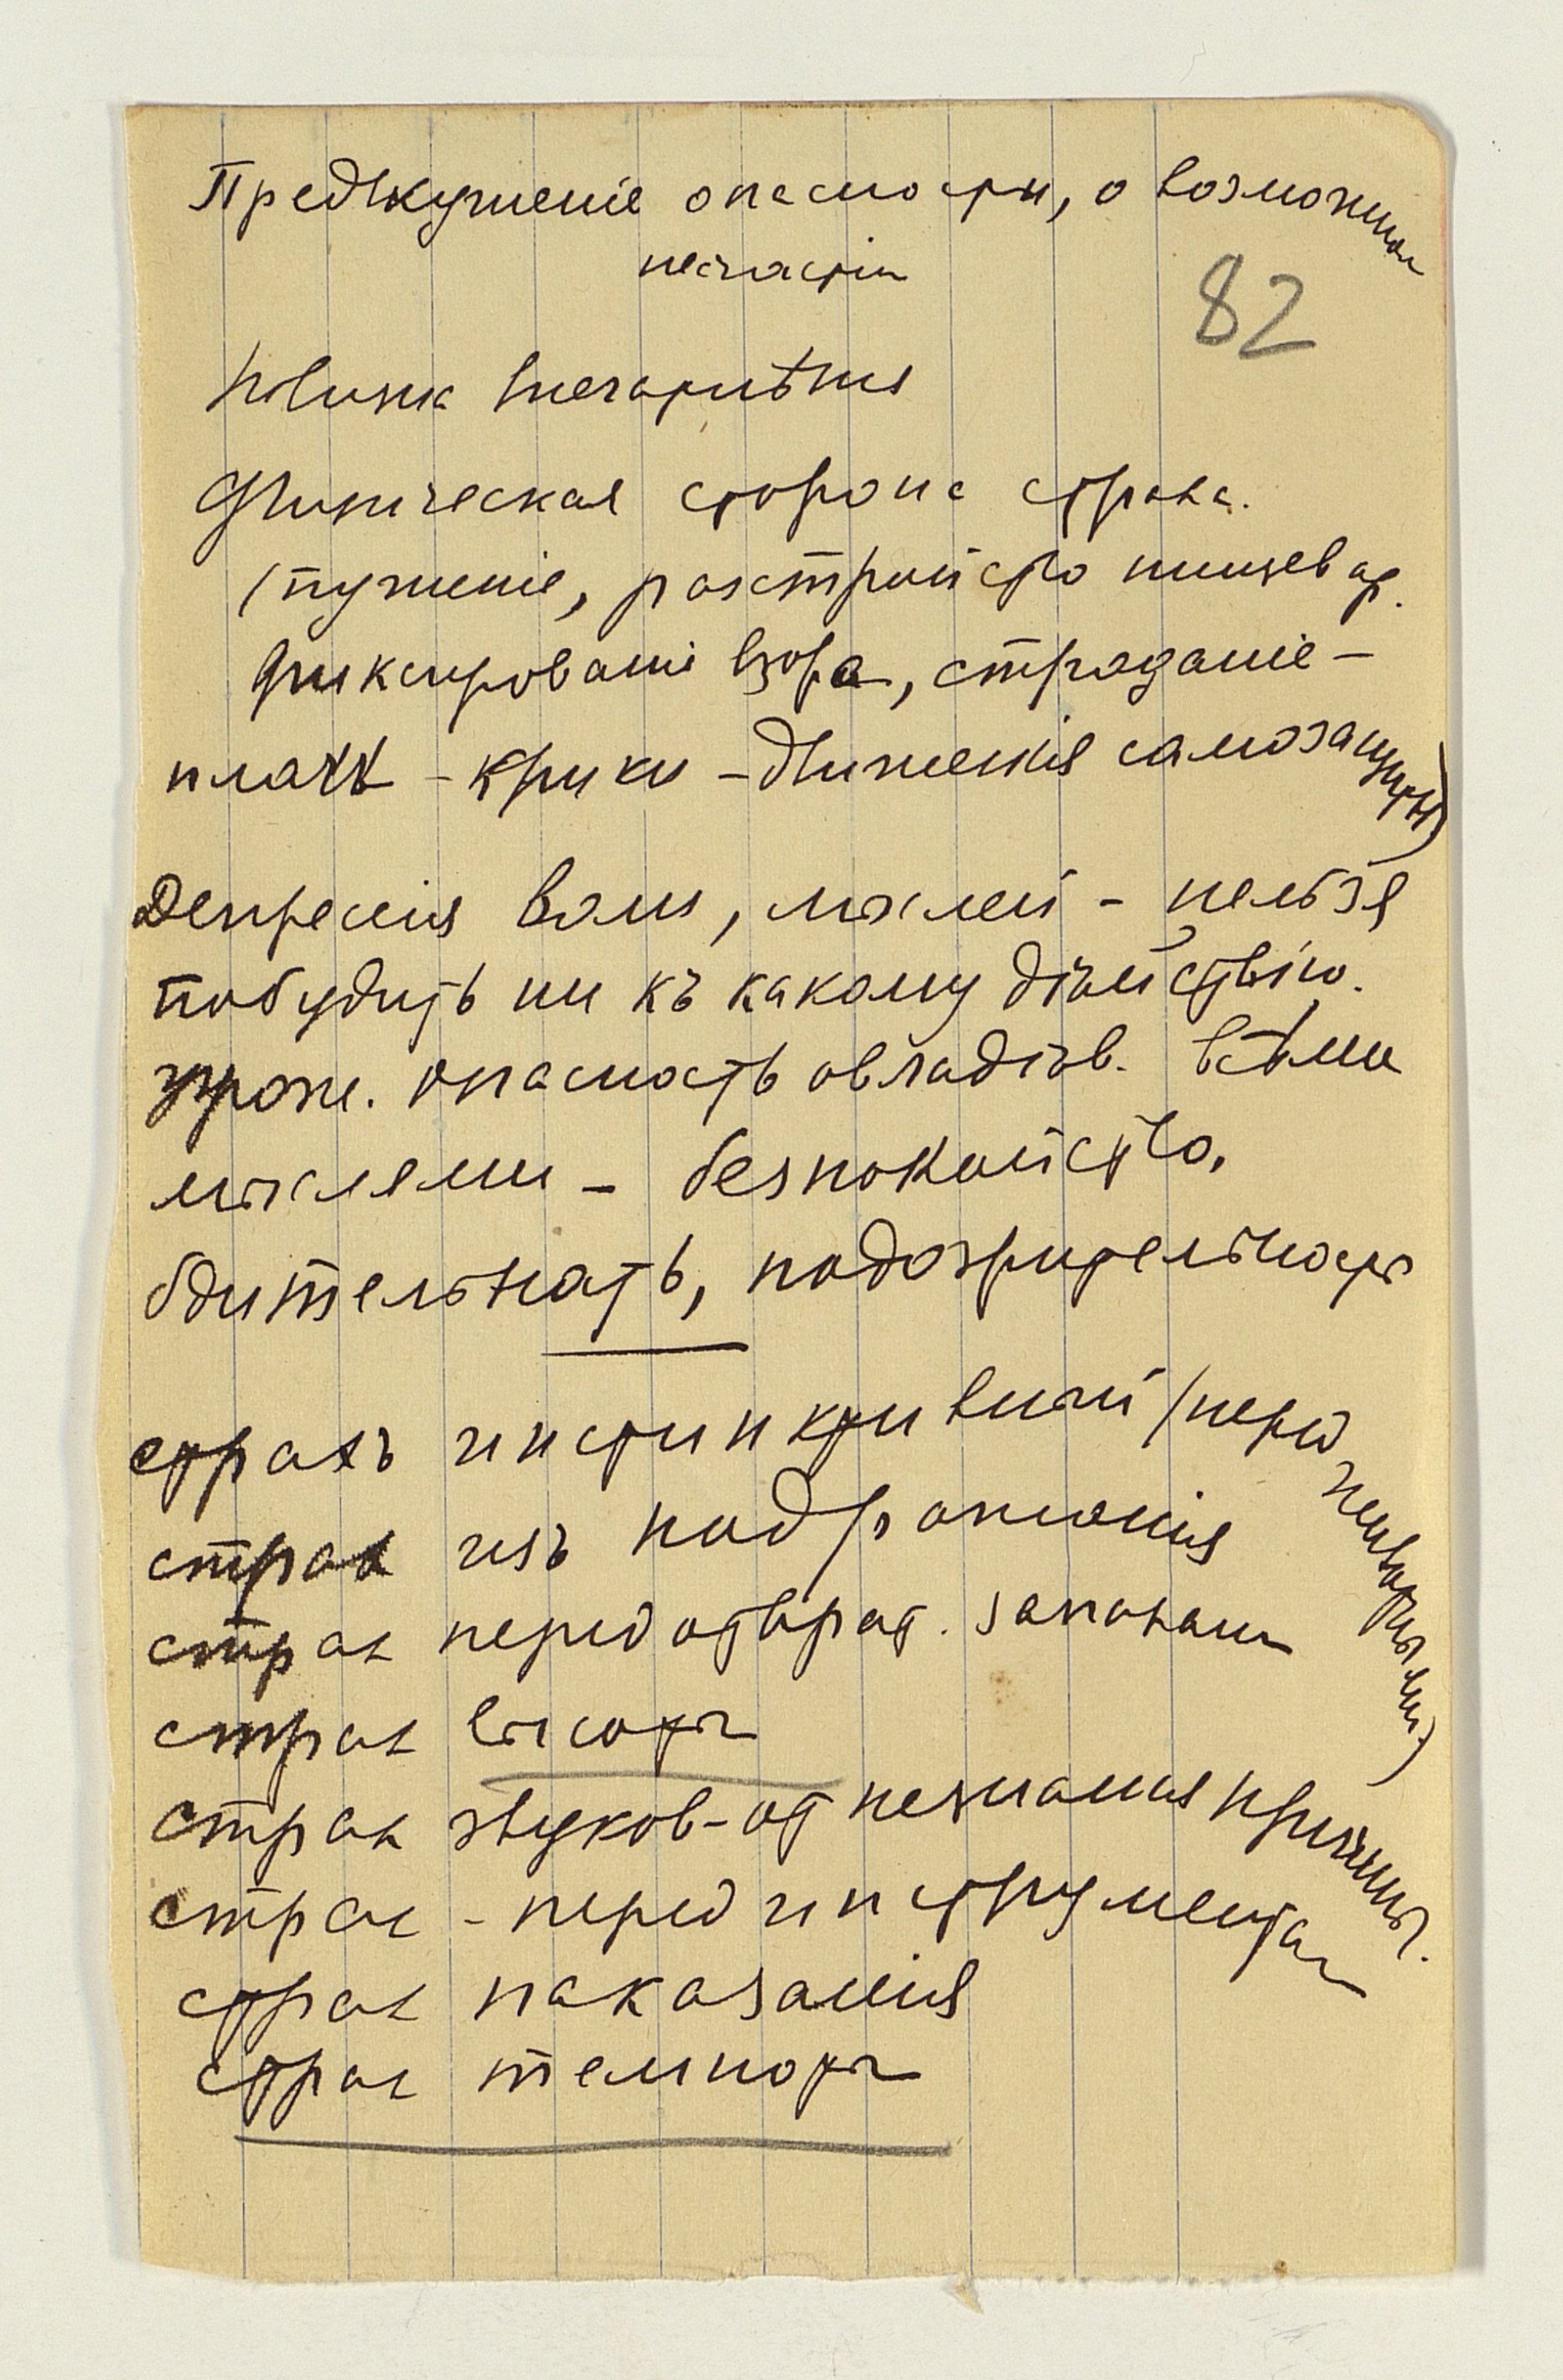 Предвкушение опасности, о возможном
несчастiи
82
Новизна впечатлѣнiя
Физическая сторона страха.
расстройство пищевар.
фиксированiе взора, страданiе –
плачъ – крики – движенiя самозащиты)
Депрессiя воли, мыслей – нельзя
побудить ни къ какому дѣйствiю.
угрож. опасность овладѣв. всѣми
мыслями – безпокойство,
бдительность, подозрительность
страхъ инстинктивный (перед животными)
страх изъ подражанiя
страх перед отврат. запахами
страх высоты
страх звуков – от незнанiя причины.
страх – перед инструментами
страх наказанiя
страх темноты